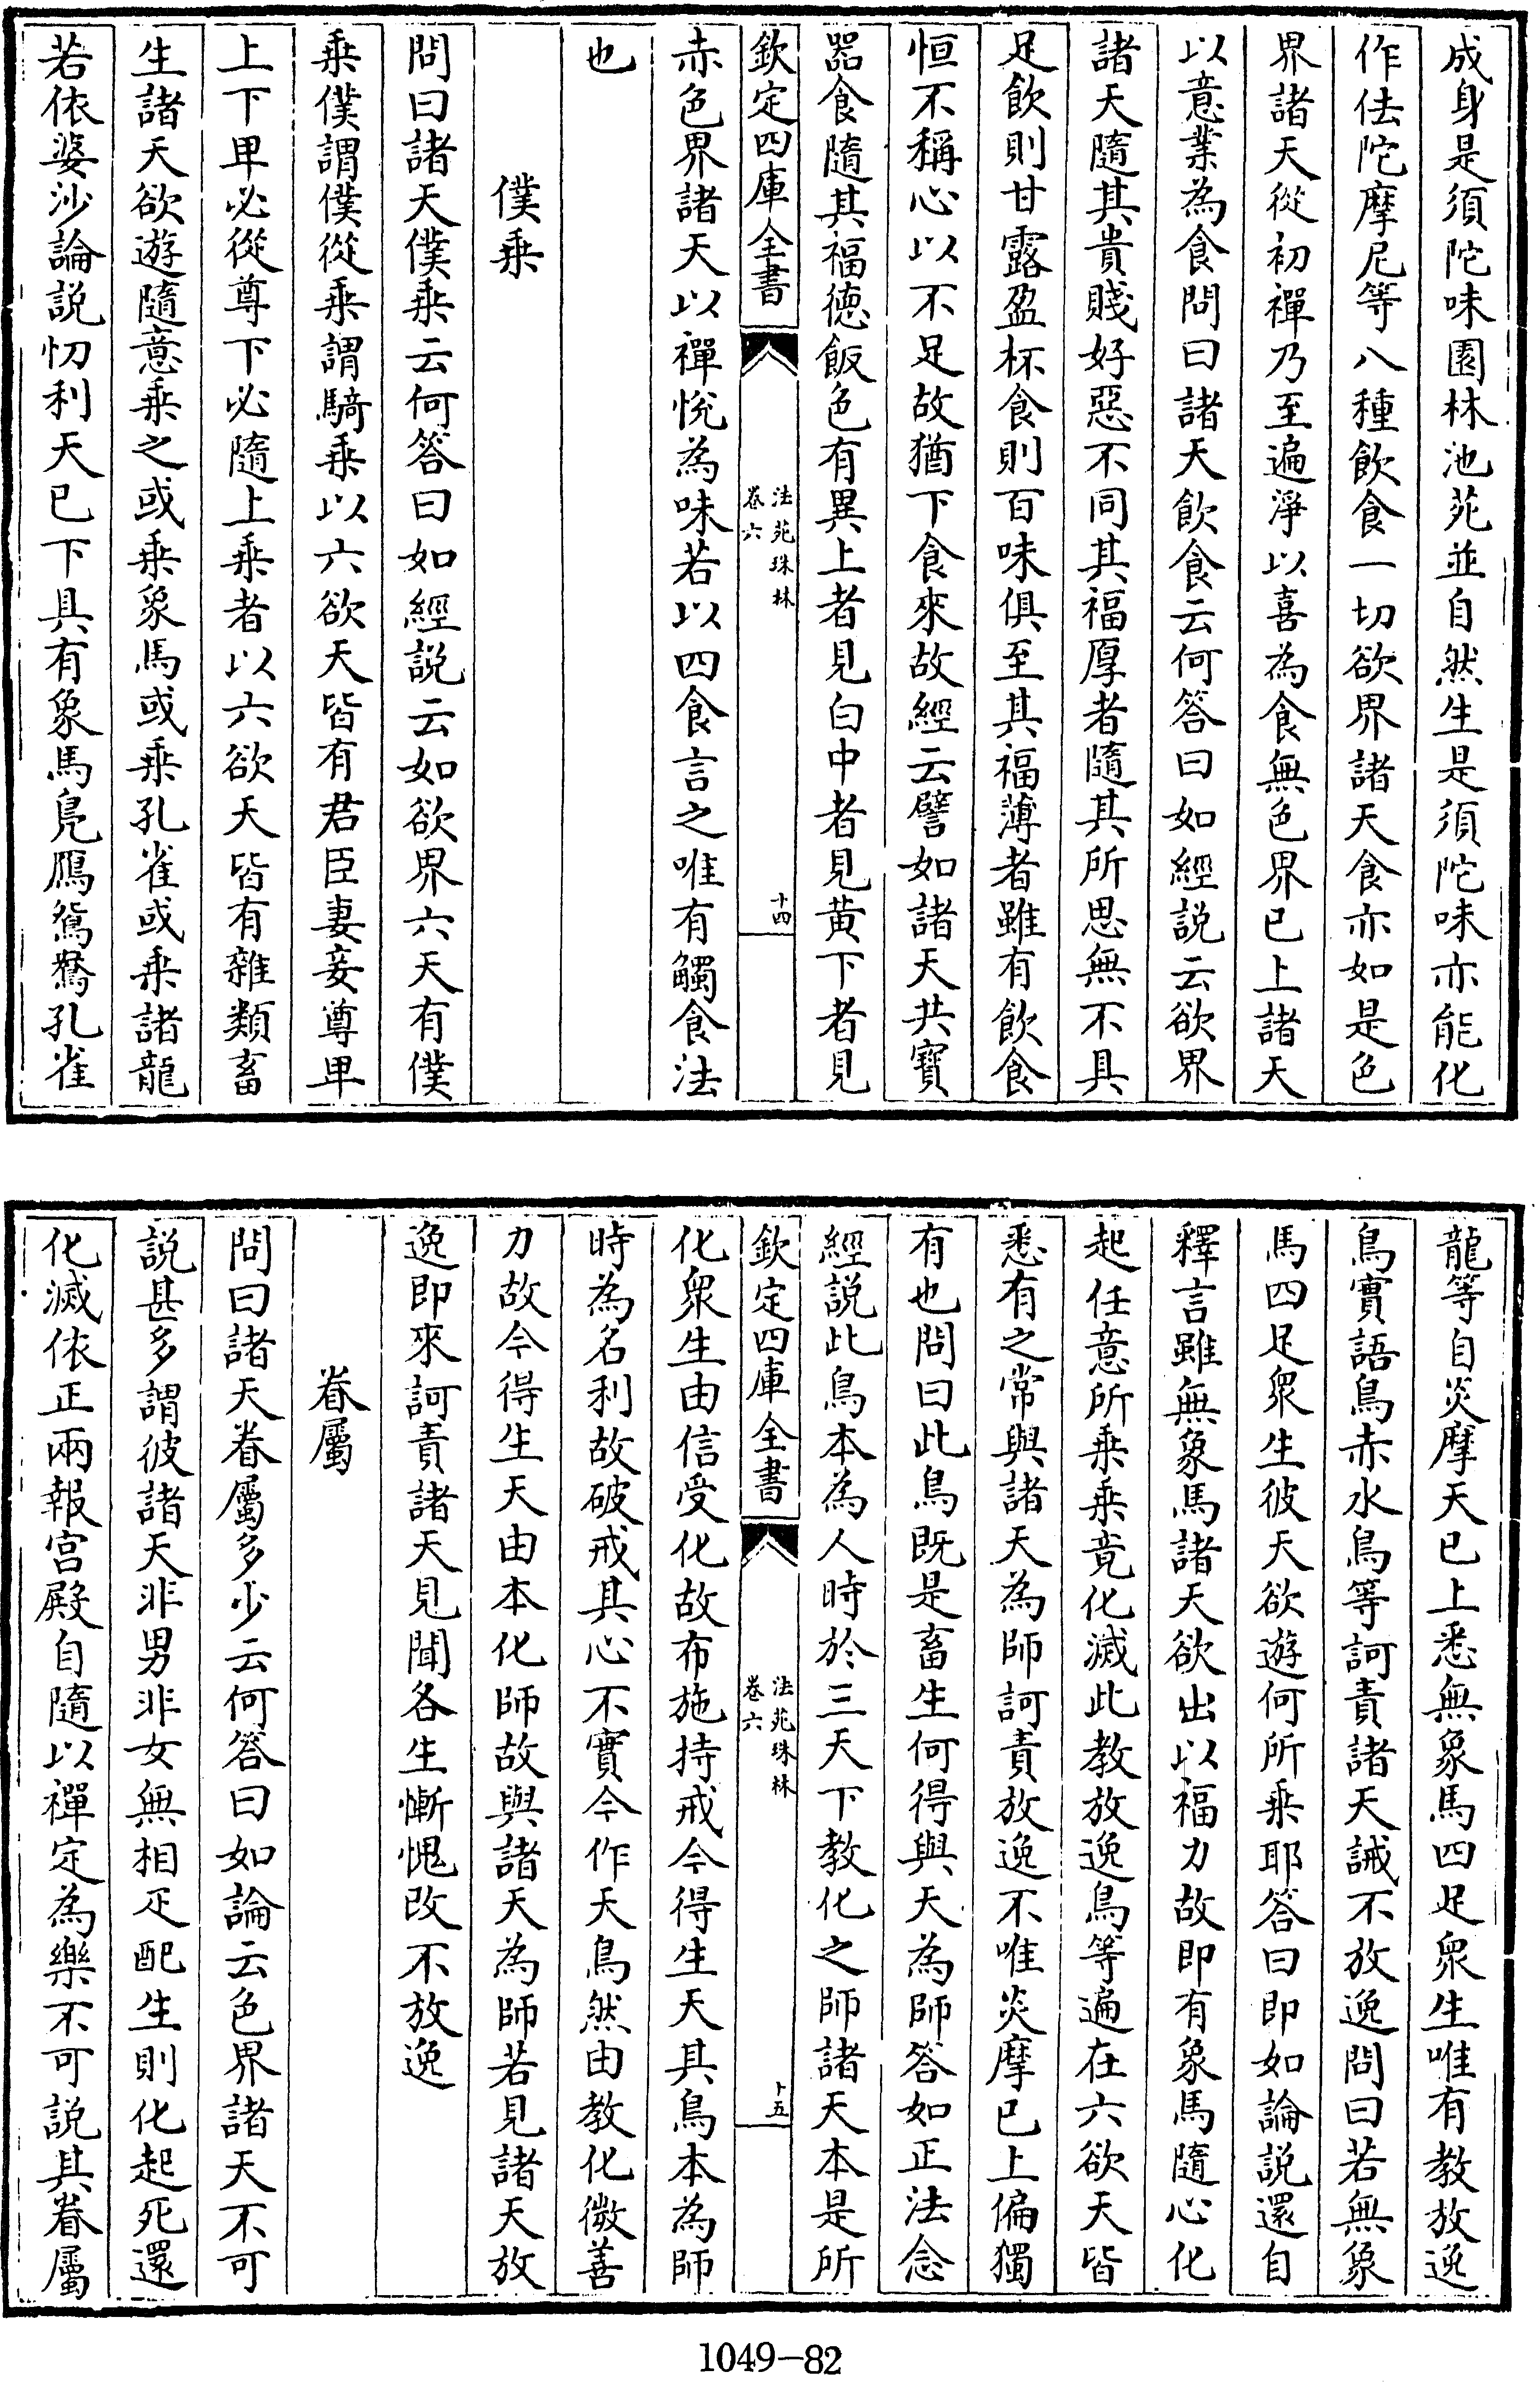 成身是須陀味園林池苑並自然生是須陀味亦能化
作佉陀摩尼等八種飲食一切欲界諸天食亦如是色
界諸天從初禪乃至遍淨以喜為食無色界已上諸天
以意業為食問曰諸天飲食云何答曰如經説云欲界
諸天隨其貴賤好惡不同其福厚者隨其所思無不具
足飲則甘露盈杯食則百味俱至其福薄者雖有飲食
恒不稱心以不足故猶下食來故經云譬如諸天共寳
器食隨其福德飯色有異上者見白中者見黄下者見
欽定四庫全書
法苑珠林
卷六
十四
赤色界諸天以禪悅為味若以四食言之唯有觸食法
也
僕乗
問曰諸天僕乗云何答曰如經説云如欲界六天有僕
乗僕謂僕從乗謂騎乗以六欲天皆有君臣妻妾尊卑
上下卑必從尊下必隨上乗者以六欲天皆有雜類畜
生諸天欲遊隨意乗之或乗象馬或乗孔雀或乗諸龍
若依婆沙論説忉利天已下具有象馬鳧鴈鴛鴦孔雀
龍等自炎摩天已上悉無象馬四足衆生唯有教放逸
鳥實語鳥赤水鳥等訶責諸天誡不放逸問曰若無象
馬四足衆生彼天欲遊何所乗耶答曰即如論説還自
釋言雖無象馬諸天欲出以福力故即有象馬隨心化
起任意所乗乗竟化滅此教放逸鳥等遍在六欲天皆
悉有之常與諸天為師訶責放逸不唯炎摩已上偏獨
有也問曰此鳥既是畜生何得與天為師答如正法念
經説此鳥本為人時於三天下教化之師諸天本是所
欽定四庫全書
法苑珠林
卷六
十五
化衆生由信受化故布施持戒今得生天其鳥本為師
時為名利故破戒其心不實今作天鳥然由教化微善
力故今得生天由本化師故與諸天為師若見諸天放
逸即來訶責諸天見聞各生慚愧改不放逸
眷屬
問曰諸天眷屬多少云何答曰如論云色界諸天不可
説甚多謂彼諸天非男非女無相疋配生則化起死還
化滅依正兩報宫殿自隨以禪定為樂不可説其眷屬
1049-82